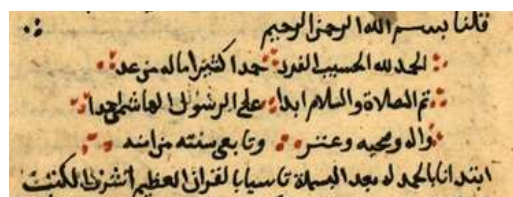 قلنا بسم الله الرحمن الرحيم
الحمد لله الحسيب الفرد حمدا كثيرا ماله من عد
ثم الصلاة والسلام ابدا على الرسول الهاشمي احمدا
واله وصحبه وتابعي سنته من
ابتدانا بالحمد له بعد البسملة تاسيا بالقران العظيم اشرف الكتب